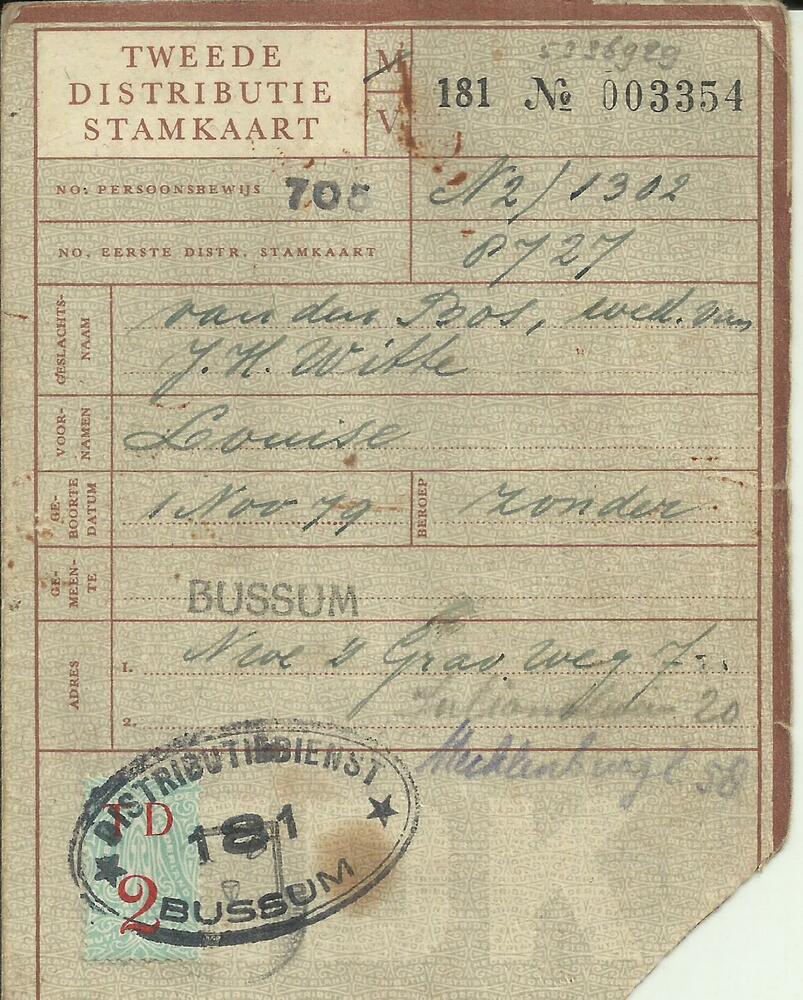 TWEEDE
DISTRIBUTIE
STAMKAART
M
V
5236929
181 № 003354
NO: PERSOONSBEWIJS 705 N2/1302
NO. EERSTE DISTR. STAMKAART 8727
GESLACHTS-
NAAM
van den Bos, wed. van
J. H. Witte
VOOR-
NAMEN
Louise
GE-
BOORTE
DATUM
1 Nov 79
BEROEP
zonder
GE-
MEEN-
TE
BUSSUM
ADRES
1. Nwe 's Grav. weg 7
2. 20
58
DISTRIBUTIEDIENST
TD
181
2
BUSSUM